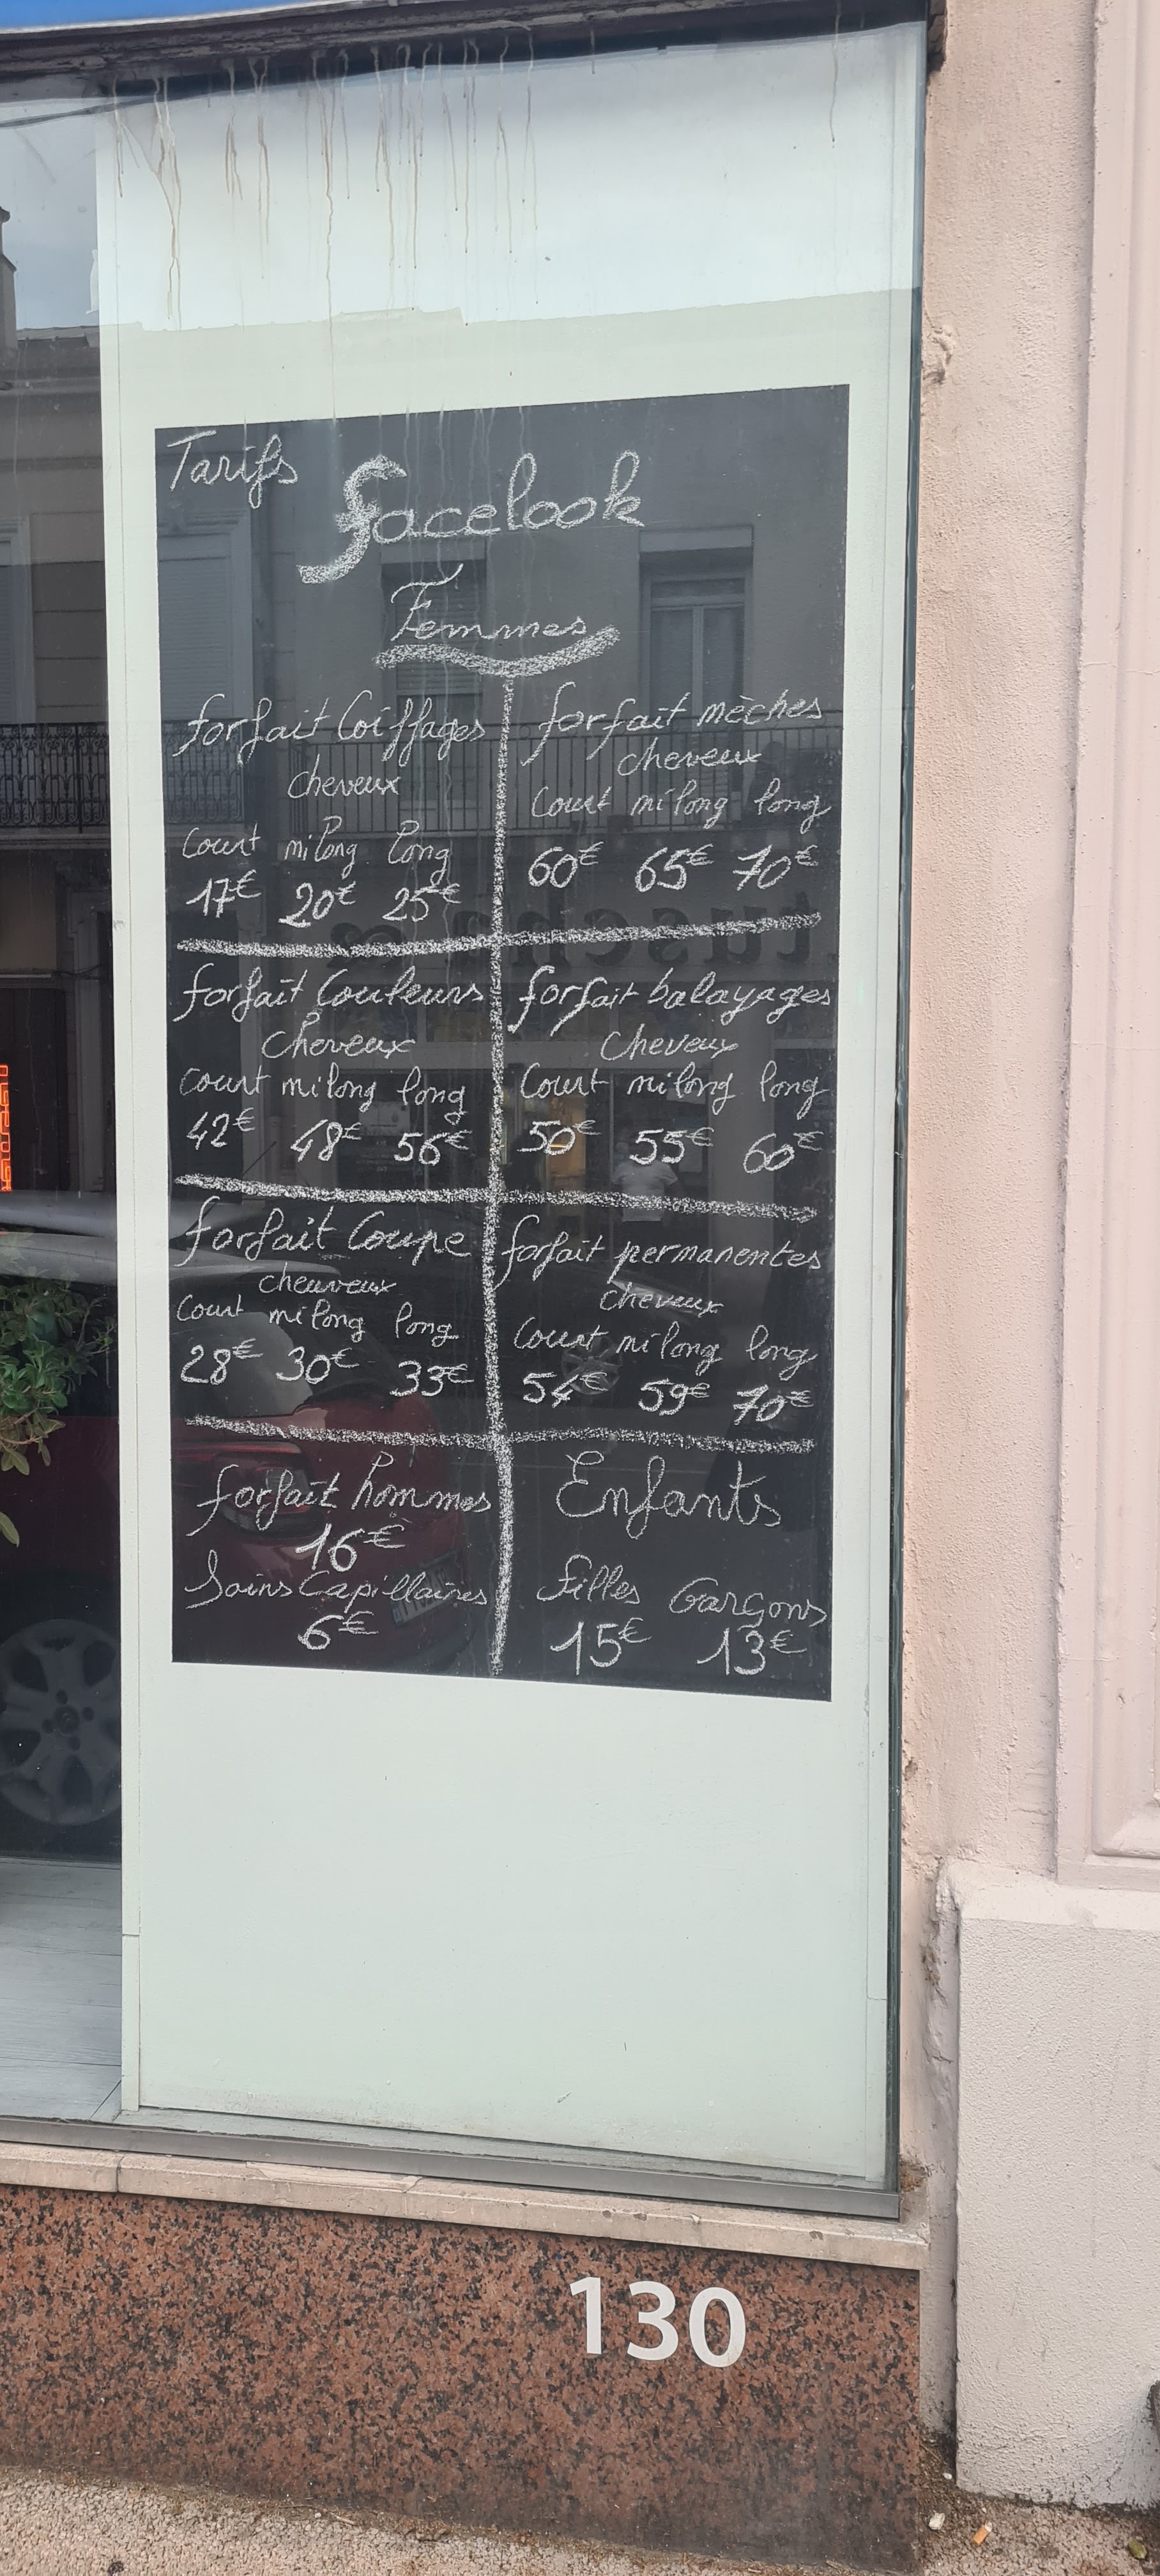 Tarifs
facelook
Femmes
forfait Coiffages
cheveux
Court milong long
17€ 20€ 25€
forfait mèches
cheveux
Court milong long
60€ 65€ 70€
forfait Couleurs
Cheveux
Court milong long
42€ 48€ 56€
forfait balayages
Cheveux
Court milong long
50€ 55€ 60€
forfait Coupe
cheuveux
Court milong long
28€ 30€ 33€
forfait permanentes
cheveux
Court milong long
54€ 59€ 70€
forfait hommes
16€
Soins Capillaires
6€
Enfants
filles Garçons
15€ 13€
130